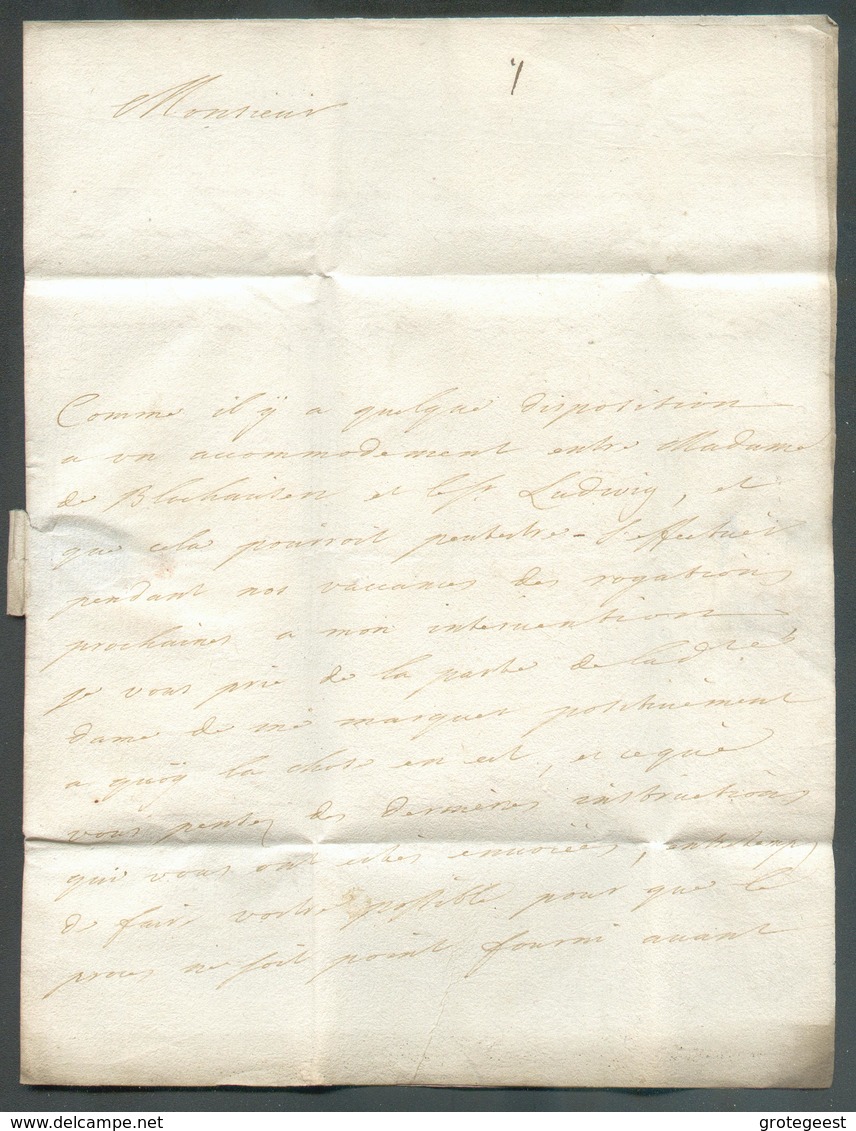 Monsieur
Comme il ÿ a quelque disposition
a vn accommodement entre Madame
de Blochausen et le Sr Ludwig, et
que cela pourroit peutestre s'effectuer
pendant nos vaccances des rogations
prochaines a mon intervention,
je vous prie de la parte de ladte
dame de me marquer positivement
a quoÿ la chose en est, et ce que
vous pensez des dernières instructions
qui vous ont estés envoiées, entretemps
de faire vostre possible pour que le
proces ne soit point fourni avant
grotegeest